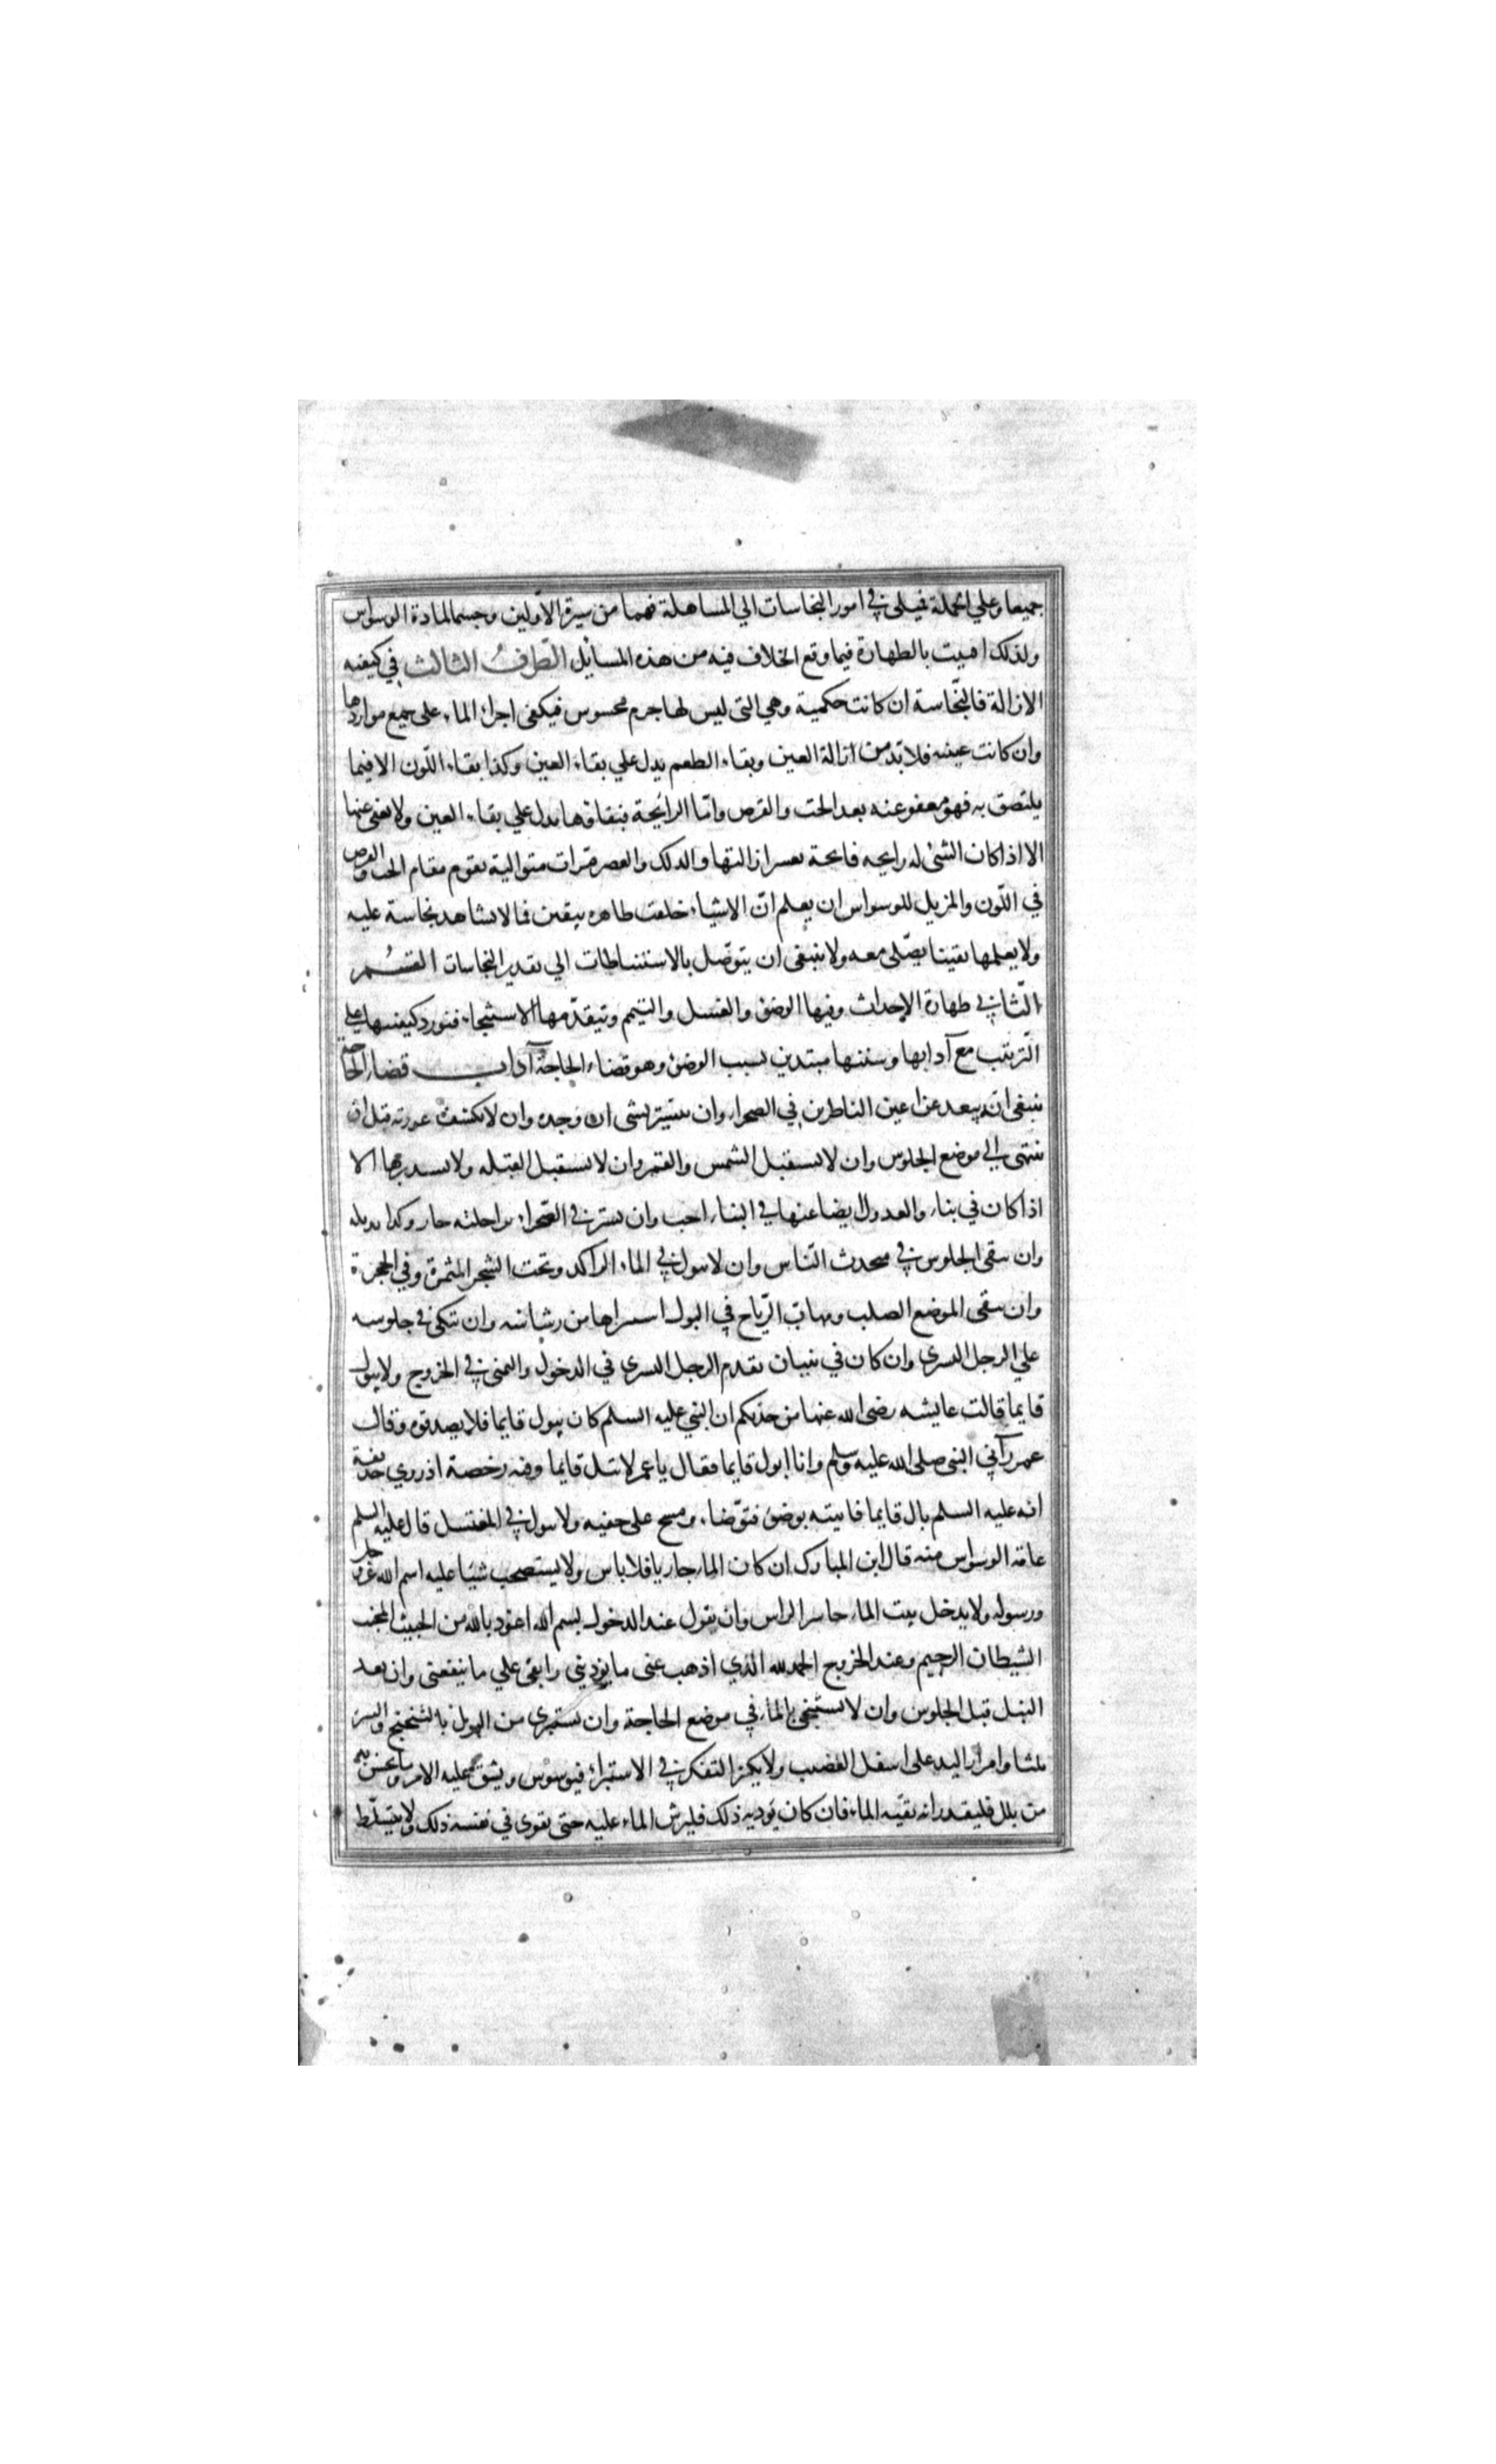 جميعا وعلي الجملة فميلى في امور النجاسات الي المساهلة فهما من سيرة الاولين وحسما لمادة الوسواس
ولذلك افتيت بالطهارة فيما وقع الخلاف فيه من هذه المسائل الطرف الثالث في كيفيه
الازالة فالنجاسة ان كانت حكمية وهي التى ليس لها جرم محسوس فيكفى اجراء الماء على جميع مواردها
وان كانت عينيه فلا بد من ازالة العين وبقاء الطعم يدل علي بقاء العين وكذا بقاء اللون الا فيما
يلتصق به فهو معفو عنه بعد الحت والقرص واما الرائحة فبقاؤها يدل علي بقاء العين ولا يعفى عنها
الا اذا كان الشئ له رايحه فايحة يعسر ازالتها والدلك والعصر مرات متوالية يقوم مقام الحت والقرص
في اللون والمزيل للوسواس ان يعلم ان الاشياء خلقت طاهره بيقين فما لا يشاهد نجاسة عليه
ولا يعلمها يقينا يصلى معه ولا ينبغى ان يتوصل بالاستنباطات الي تقدير النجاسات القسم
الثاني في طهارة الاحداث وفيها الوضؤ والغسل والتيمم ويتقدمها الاستنجاء فنورد كيفيتها على
الترتيب مع آدابها وسننها مبتدين بسبب الوضؤ وهو قضاء الحاجة آداب قضاء الحاجة
ينبغى ان يبعد عن اعين الناظرين في الصحراء وان يستتر بشى ان وجده وان لا يكشف عورته قبل ان
ينتهى الي موضع الجلوس وان لا يستقبل الشمس والقمر وان لا يستقبل القبله ولا يستدبرها الا
اذا كان في بناء والعدول ايضا عنها في البناء احب وان يستر في الصحراء براحلته جاز وكذا بذيله
وان يتقى الجلوس في متحدث الناس وان لا يبول في الماء الراكد وتحت الشجر المثمرة وفي الجحرة
وان يتقى الموضع الصلب ومهاب الرياح في البول استنزاها من رشاشه وان يتكئ في جلوسه
علي الرجل اليسرى وان كان في بنيان يقدم الرجل اليسرى في الدخول واليمنى في الخروج ولا يبول
قايما قالت عايشه رضى الله عنها من حدثكم ان النبي عليه السلم كان يبول قايما فلا يصدقوه وقال
عمر رآني النبى صلى الله عليه وسلم وانا ابول قايما فقال يا عمر لا تبل قايما وفيه رخصة اذ روي حذيفة
انه عليه السلم بال قايما فاتيته بوضؤ فتوضاء ومسح على خفيه ولا يبول في المغتسل قال عليه السلم
عامة الوسواس منه قال ابن المبارك ان كان الماء جاريا فلا باس ولا يستصحب شيئا عليه اسم الله عز وجل
ورسوله ولا يدخل بيت الماء حاسر الراس وان يقول عند الدخول بسم الله اعوذ بالله من الخبيث المخبث
الشيطان الرجيم وعند الخروج الحمد لله الذي اذهب عنى ما يؤذيني وابقى علي ما ينفعنى وان يعد
النبل قبل الجلوس وان لا يستنجى بالماء في موضع الحاجة وان يستبرى من البول بالتنحنح والنتر
ثلثا وامرار اليد على اسفل القضيب ولا يكثر التفكر في الاستبراء فيوسوس ويشق عليه الامر وما يحس به
من بلل فليقدر انه بقيه الماء فان كان يؤديه ذلك فليرش الماء عليه حتى يقوى في نفسه ذلك ولا يتسلط